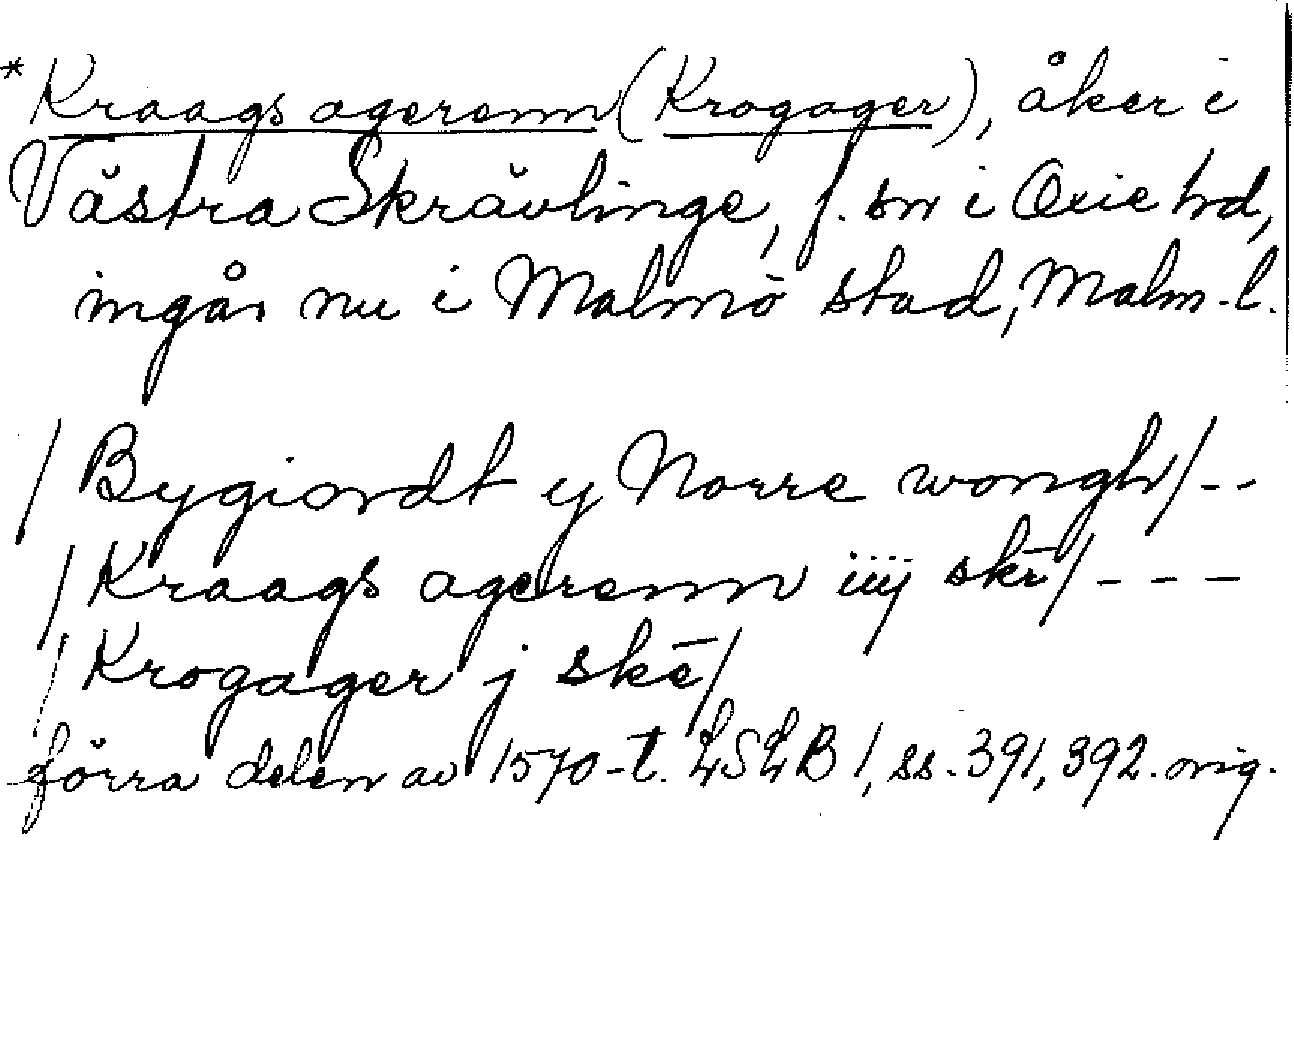 *Kraags agerenn (Krogager), åker i
Västra Skrävlinge, f. sn i Oxie hd,
ingår nu i Malmö stad, Malm-l.
/Bygiordt y Norre wongh/--
/Kraags agerenn iiij skē/---
/Krogager j skē/
förra delen av 1570-t. LSLB 1, ss. 391, 392. orig.